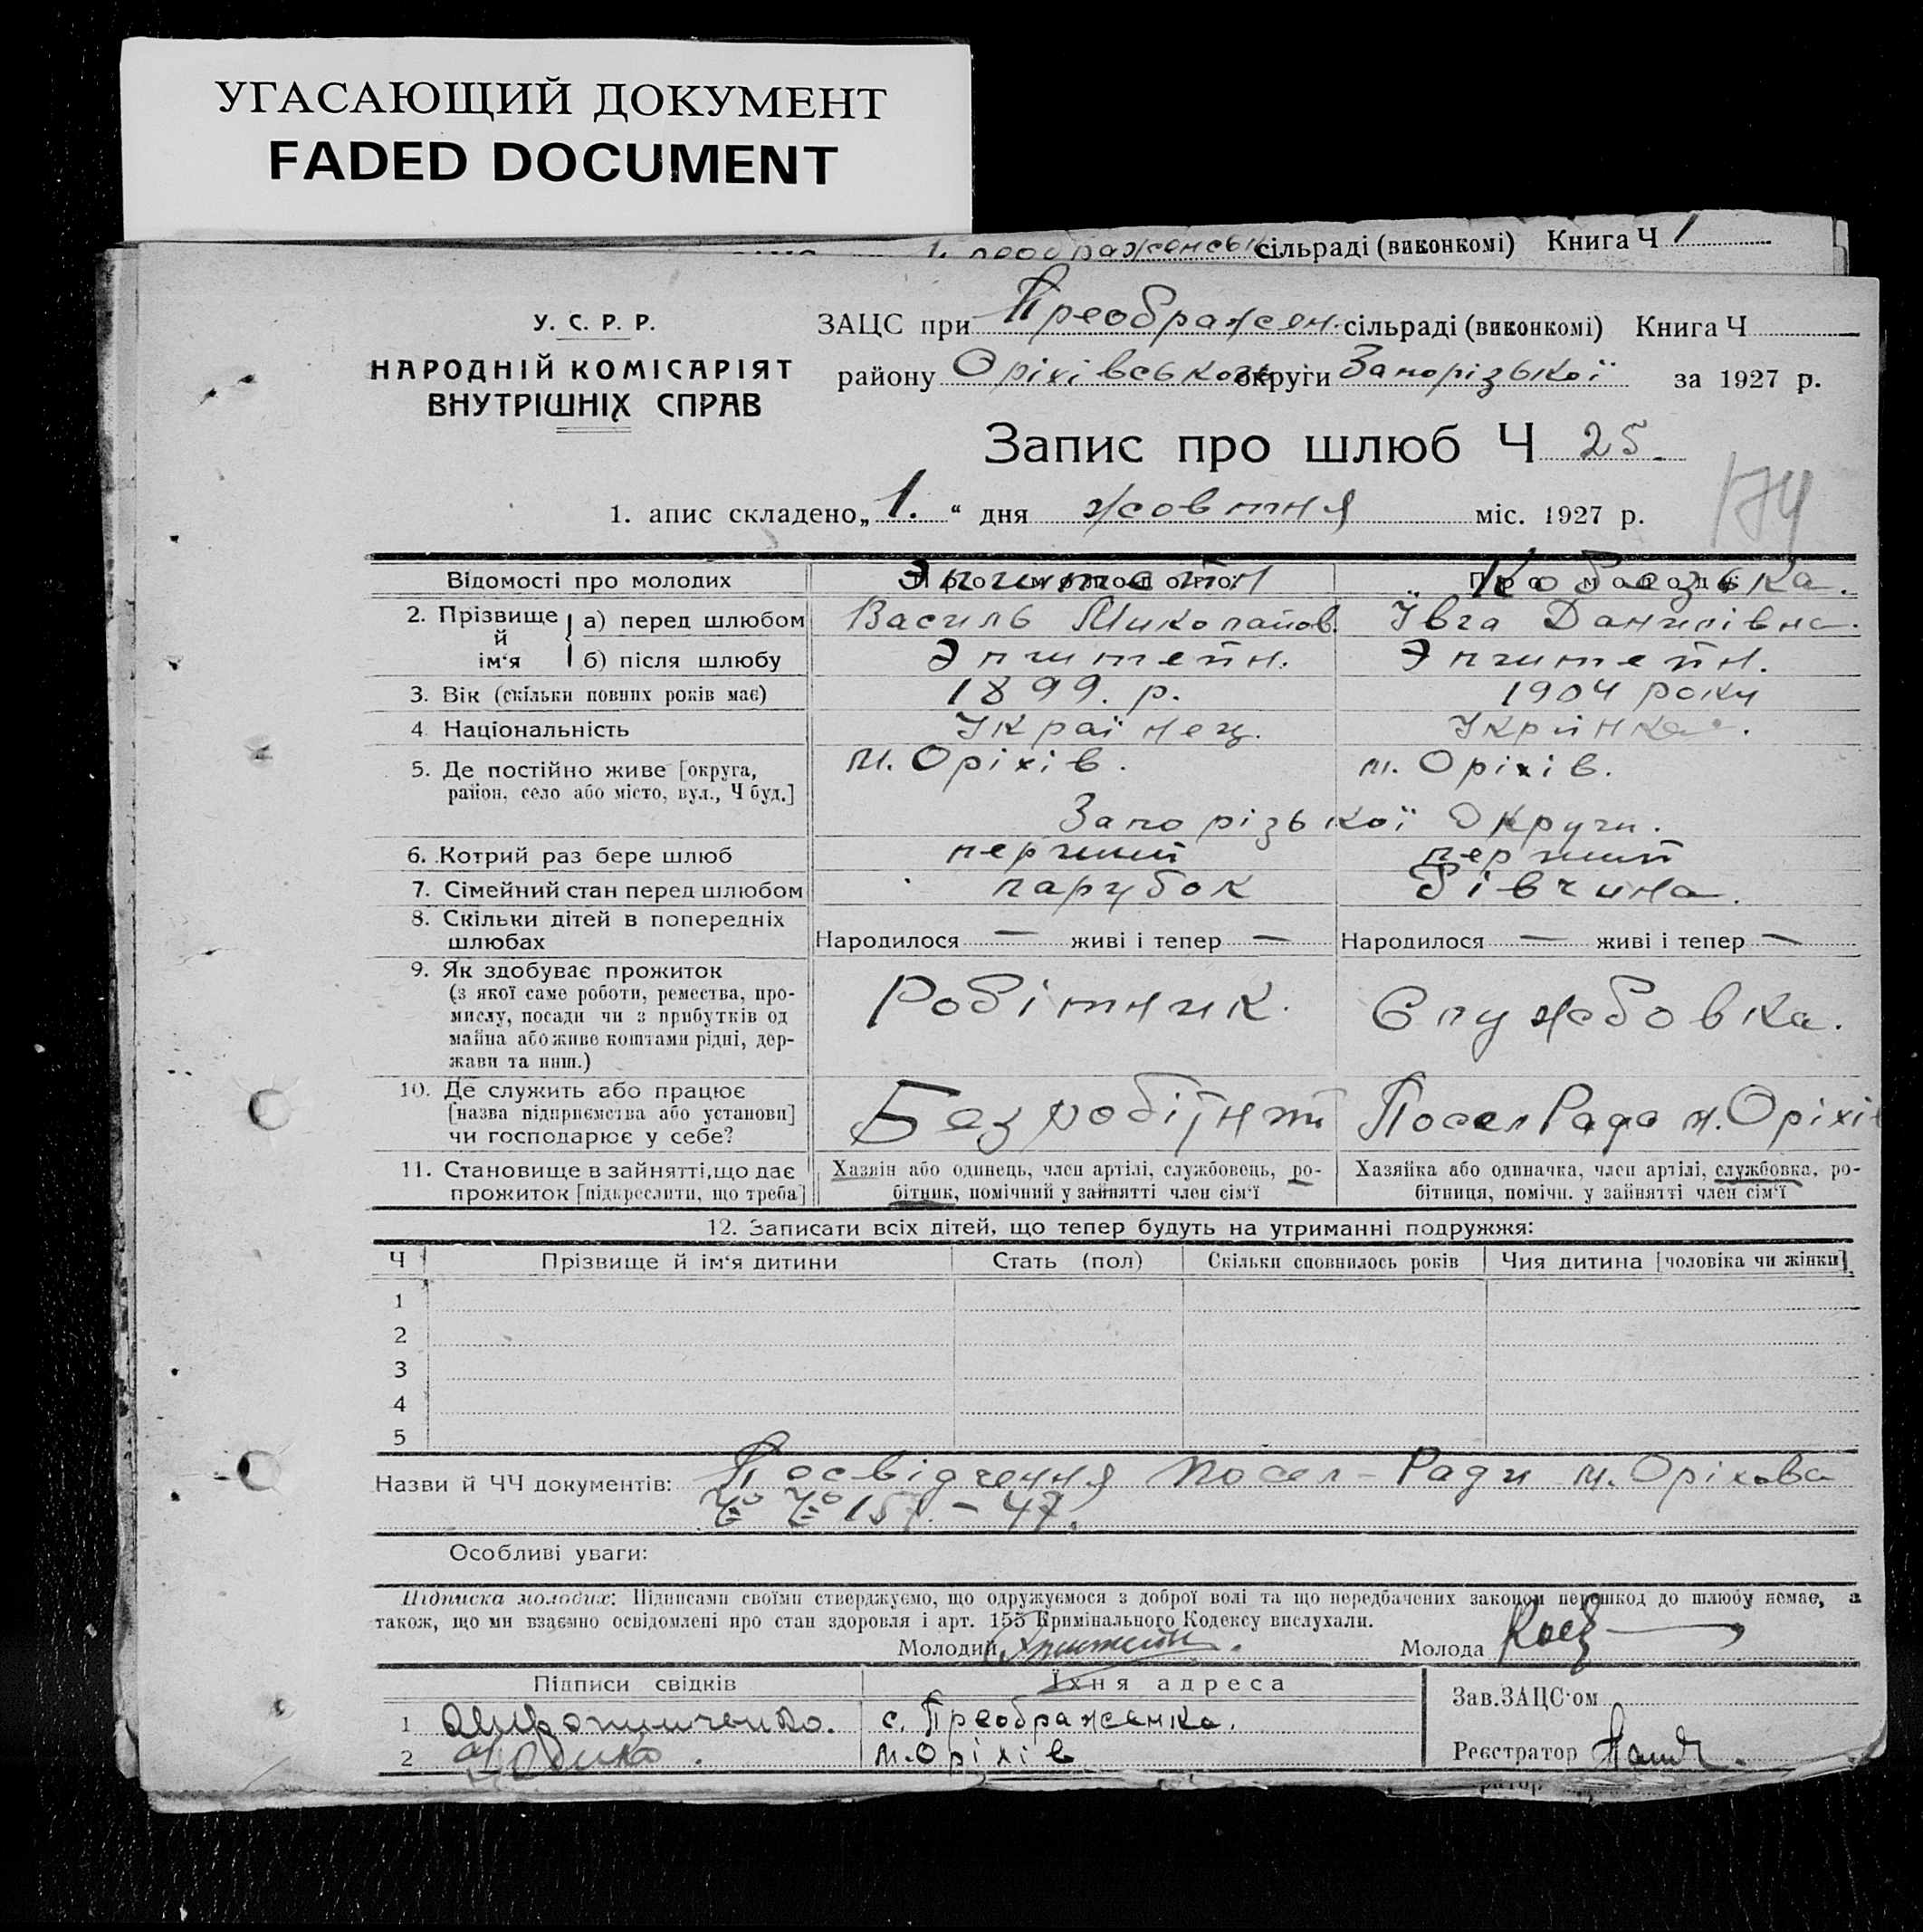 УГАСАЮЩИЙ ДОКУМЕНТ
FADED DOCUMENT
сільраді (виконкомі) Книга Ч 1
У. С. Р. Р.
НАРОДНІЙ КОМІСАРІЯТ
ВНУТРІШНІХ СПРАВ
ЗАЦС при Преображен. сільраді (виконкомі) Книга Ч
району Оріхівського округи Запорізької за 1927 р.
Запис про шлюб Ч 25.
174
1. апис складено „1.“ дня жовтня міс. 1927 р.
Відомості про молодих
Про молодого: Эпштейн
Про молоду: Кобезька.
2. Прізвище й ім‘я
а) перед шлюбом Василь Миколайов. Ївга Данилівна.
б) після шлюбу Эпштейн. Эпштейн.
3. Вік (скільки повних років має) 1899. р. 1904 року
4 Національність Українец. Укрїнка.
5. Де постійно живе [округа, район, село або місто, вул., Ч буд.]
м. Оріхів. м. Оріхів.
Запорізької Округи.
6. Котрий раз бере шлюб перший перший
7. Сімейний стан перед шлюбом парубок Дівчина.
8. Скільки дітей в попередніх шлюбах
Народилося — живі і тепер — Народилося — живі і тепер —
9. Як здобуває прожиток
(з якої саме роботи, ремества, про-
мислу, посади чи з прибутків од
майна або живе коштами рідні, дер-
жави та инш.)
Робітник. Службовка.
10. Де служить або працює
[назва підприємства або установи]
чи господарює у себе?
Безробітний ПоселРада м. Оріхів
11. Становище в зайнятті, що дає
прожиток [підкреслити, що треба]
Хазяін або одинець, член артілі, службовець, ро-
бітник, помічний у зайнятті член сім‘ї
Хазяйка або одиначка, член артілі, службовка, ро-
бітниця, помічн. у зайнятті член сім‘ї
12. Записати всіх дітей, що тепер будуть на утриманні подружжя:
Ч Прізвище й ім‘я дитини Стать (пол) Скільки сповнилось років Чия дитина [чоловіка чи жінки]
1
2
3
4
5
Назви й ЧЧ документів: Посвідчення Посел-Ради м. Оріхова
157 – 47.
Особливі уваги:
Підписка молодих: Підписами своїми стверджуємо, що одружуємося з доброї волі та що передбачених законом перешкод до шлюбу немає, а
також, що ми взаємно освідомлені про стан здоровля і арт. 155 Кримінального Кодексу вислухали.
Молодий Эпштейн. Молода
Підписи свідків Їхня адреса
1 с. Преображенка.
2 м. Оріхів
Зав. ЗАЦС‘ом
Реєстратор